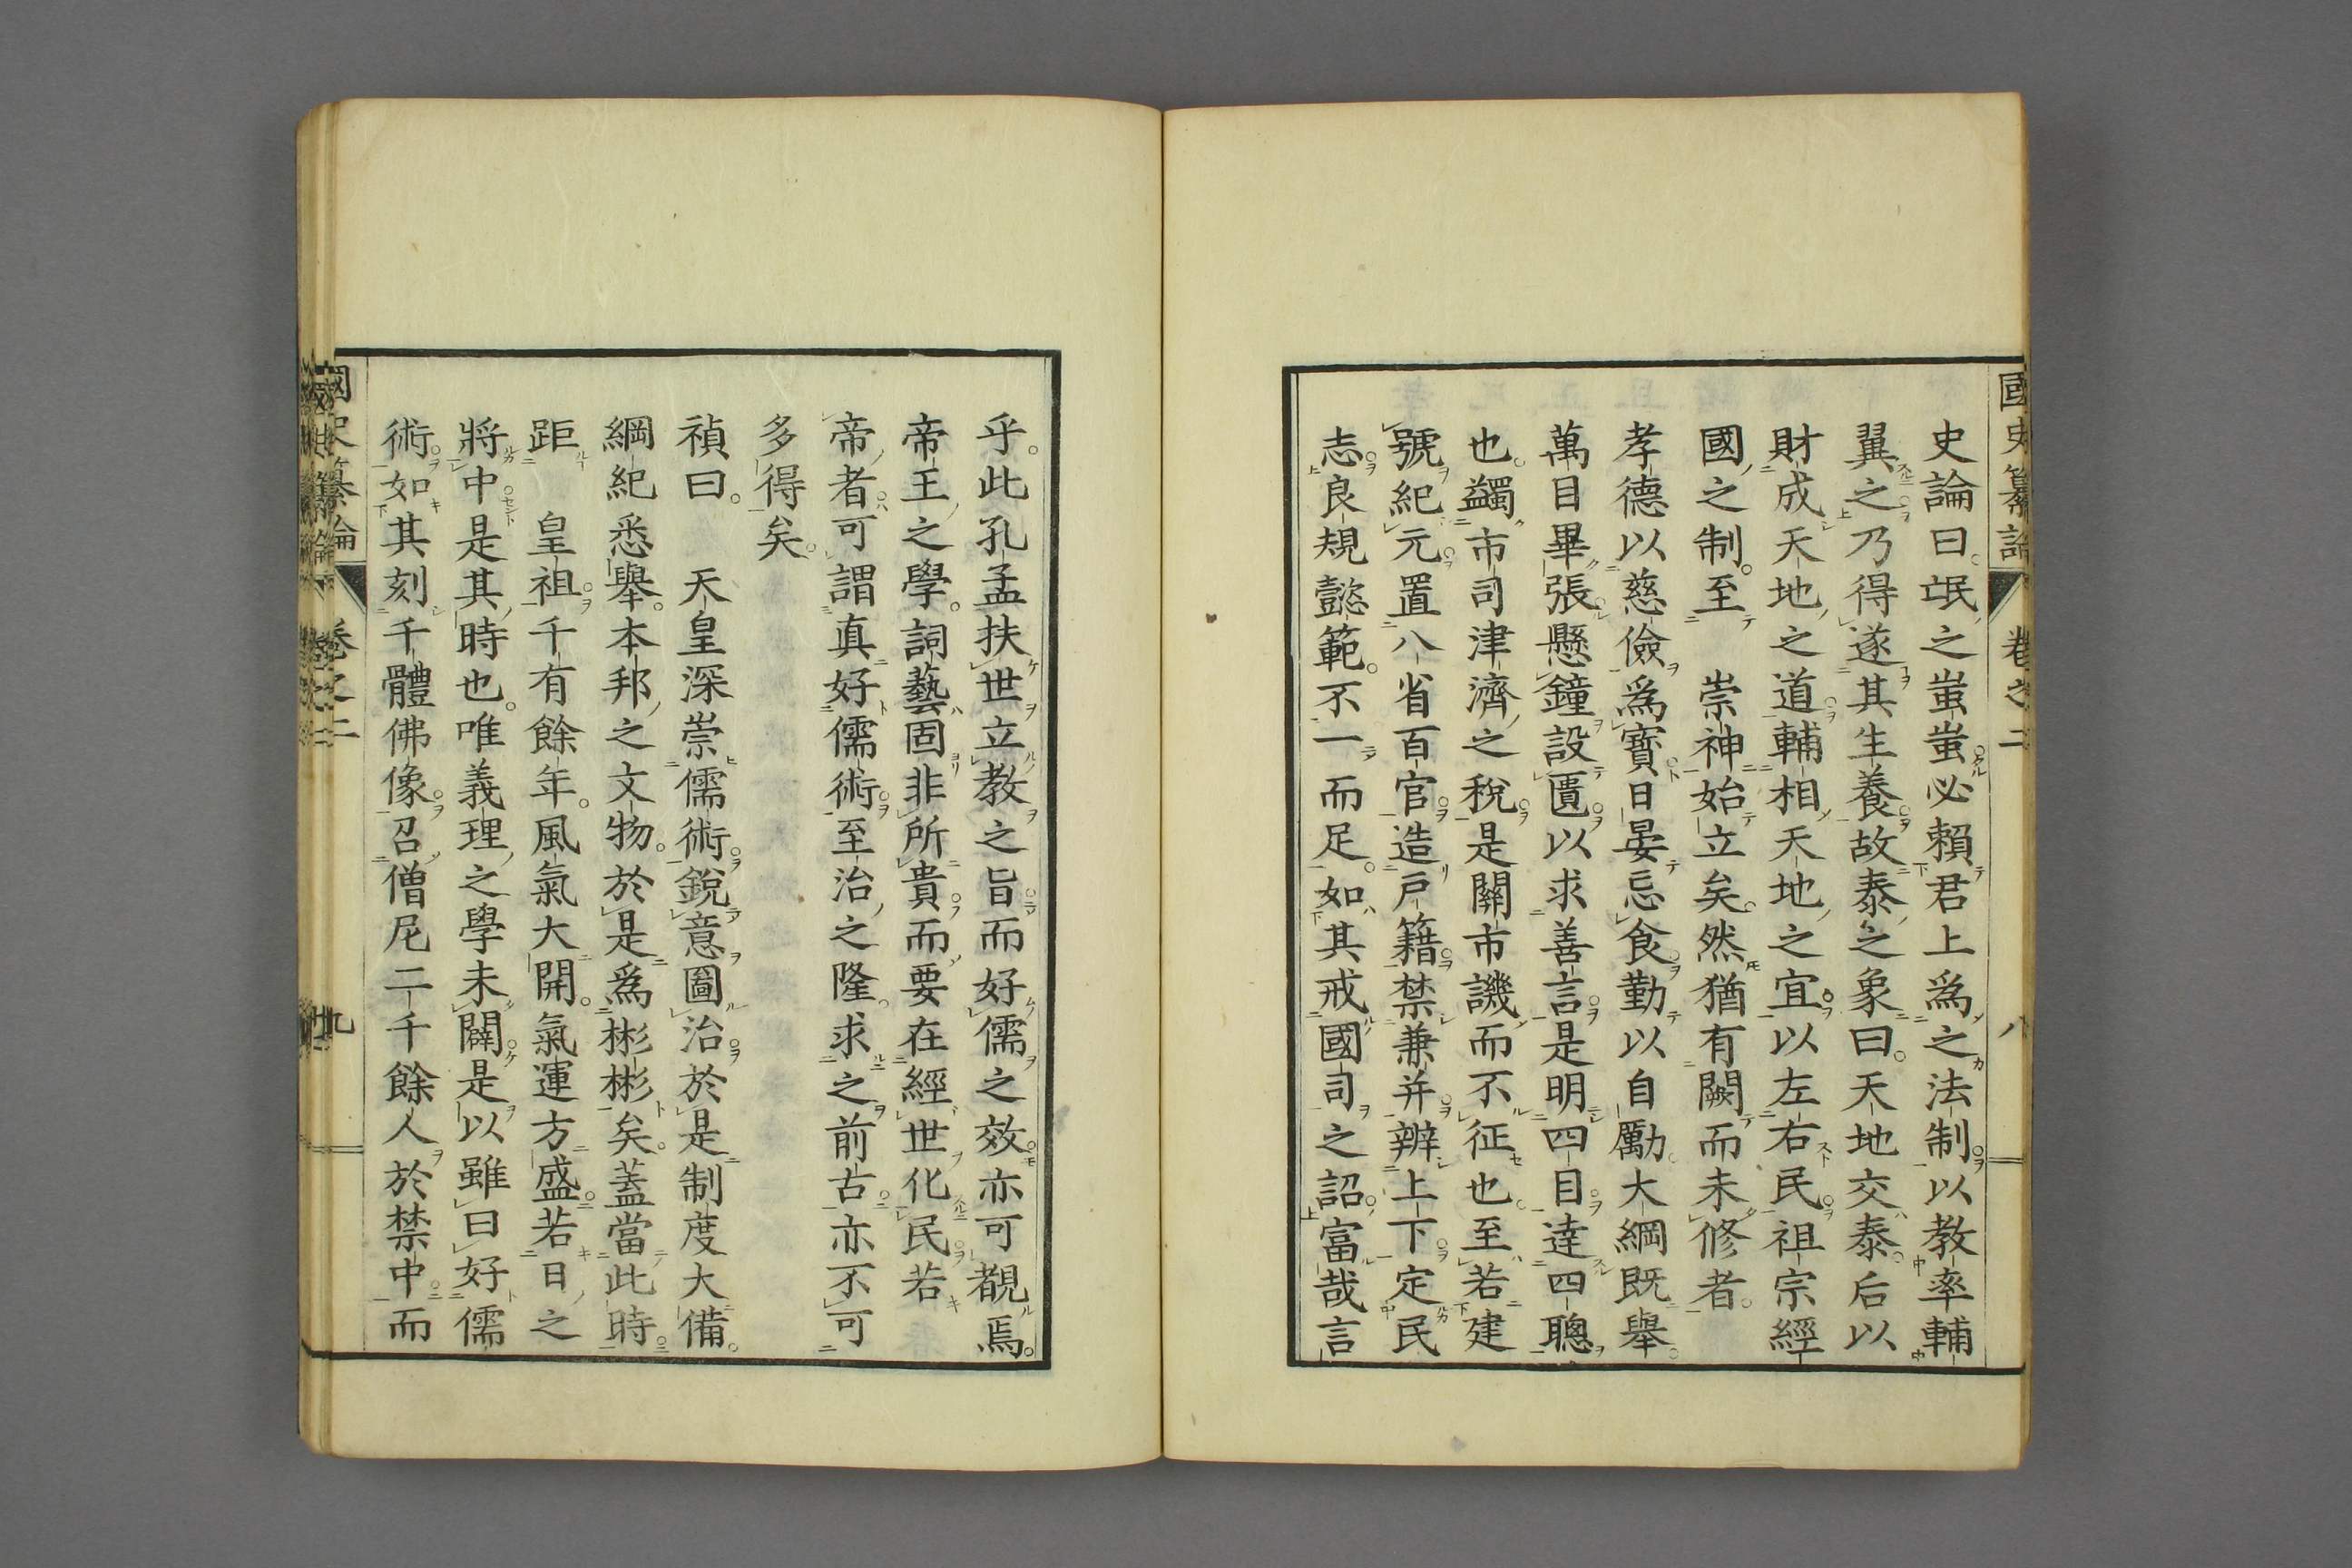 國史纂論 卷之二 八
史論曰。氓之蚩蚩必賴君上爲之法制以教率輔
翼之乃得遂其生養故泰之象曰。天地交泰后以
財成天地之道輔相天地之宜以左右民祖宗經
國之制。至 崇神始立矣。然猶有闕而未修者。
孝德以慈儉爲寶日晏忘食勤以自勵。大綱既舉。
萬目畢張懸鐘設匱以求善言是明四目達四聰
也。蠲市司津濟之稅是關市譏而不征也。至若建
號紀元置八省百官造戶籍禁兼并辨上下定民
志良規懿範。不一而足。如其戒國司之詔富哉言
乎。此孔孟扶世立教之旨而好儒之效亦可覩焉。
帝王之學。詞藝固非所貴而要在經世化民若
帝者可謂真好儒術至治之隆。求之前古亦不可
多得矣。
禎曰。 天皇深崇儒術。銳意圖治於是制度大備。
綱紀悉舉。本邦之文物。於是爲彬彬矣。蓋當此時
距 皇祖千有餘年。風氣大開。氣運方盛。若日之
將中是其時也。唯義理之學未闢是以雖曰好儒
術。如其刻千體佛像。召僧尼二千餘人於禁中而
國史纂論 卷之二 九